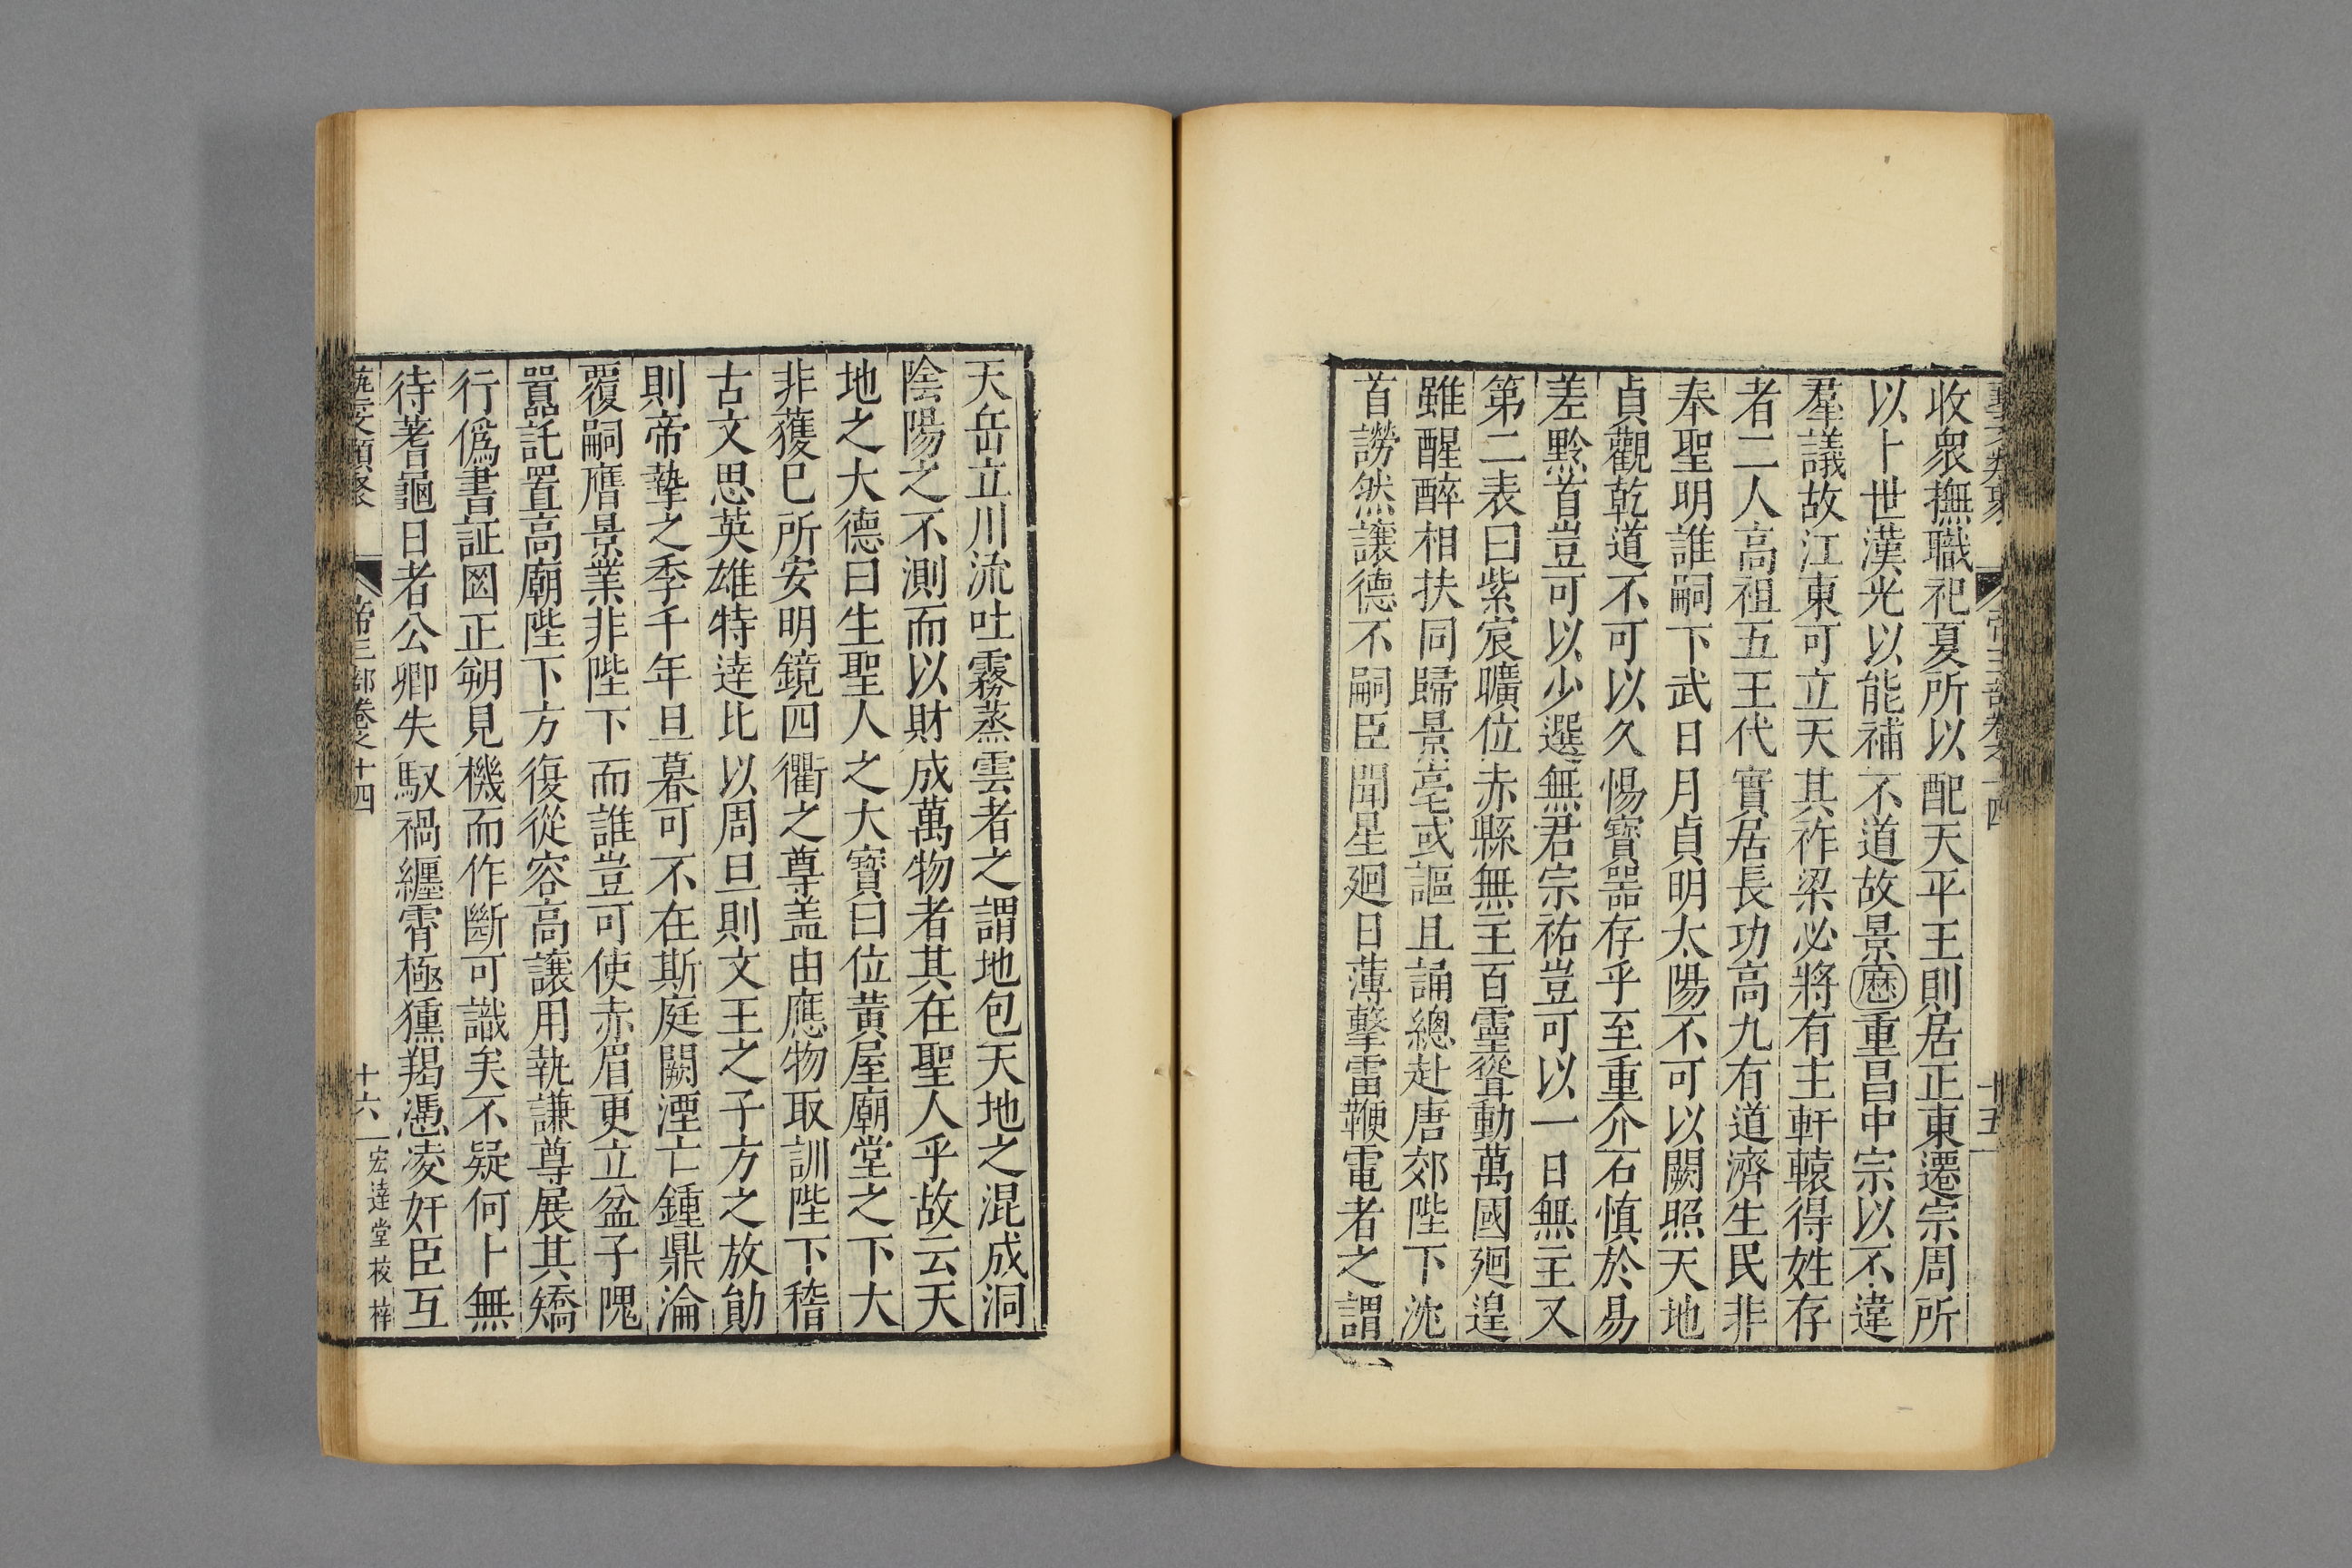 收衆撫職祀夏所以配天平王則居正東遷宗周所
以卜世漢光以能補不道故景曆重昌中宗以不違
羣議故江東可立天其祚梁必將有主軒轅得姓存
者二人高祖五王代實居長功高九有道濟生民非
奉聖明誰嗣下武日月貞明太陽不可以闕照天地
貞觀乾道不可以久惕寶器存乎至重介石慎於易
差黔首豈可以少選無君宗祐豈可以一日無主又
第二表曰紫宸曠位赤縣無主百靈聳動萬國廻遑
雖醒醉相扶同歸景亳或謳且誦總赴唐郊陛下沈
首謗然讓德不嗣臣聞星廻日薄擊雷鞭電者之謂
天岳立川流吐霧蒸雲者之謂地包天地之混成洞
陰陽之不測而以財成萬物者其在聖人乎故云天
地之大德曰生聖人之大寶曰位黃屋廟堂之下大
非獲已所安明鏡四衢之尊盖由應物取訓陛下稽
古文思英雄特達比以周旦則文王之子方之放勛
則帝摯之季千年旦暮可不在斯庭闕湮亡鍾鼎淪
覆嗣膺景業非陛下而誰豈可使赤眉更立盆子隗
囂託置高廟陛下方復從容高讓用執謙尊展其矯
行僞書証囹正朔見機而作斷可識矣不疑何卜無
待蓍龜日者公卿失馭禍纏霄極獯羯憑凌奸臣互
藝文類聚 帝王部卷之十四 十六 宏達堂校梓